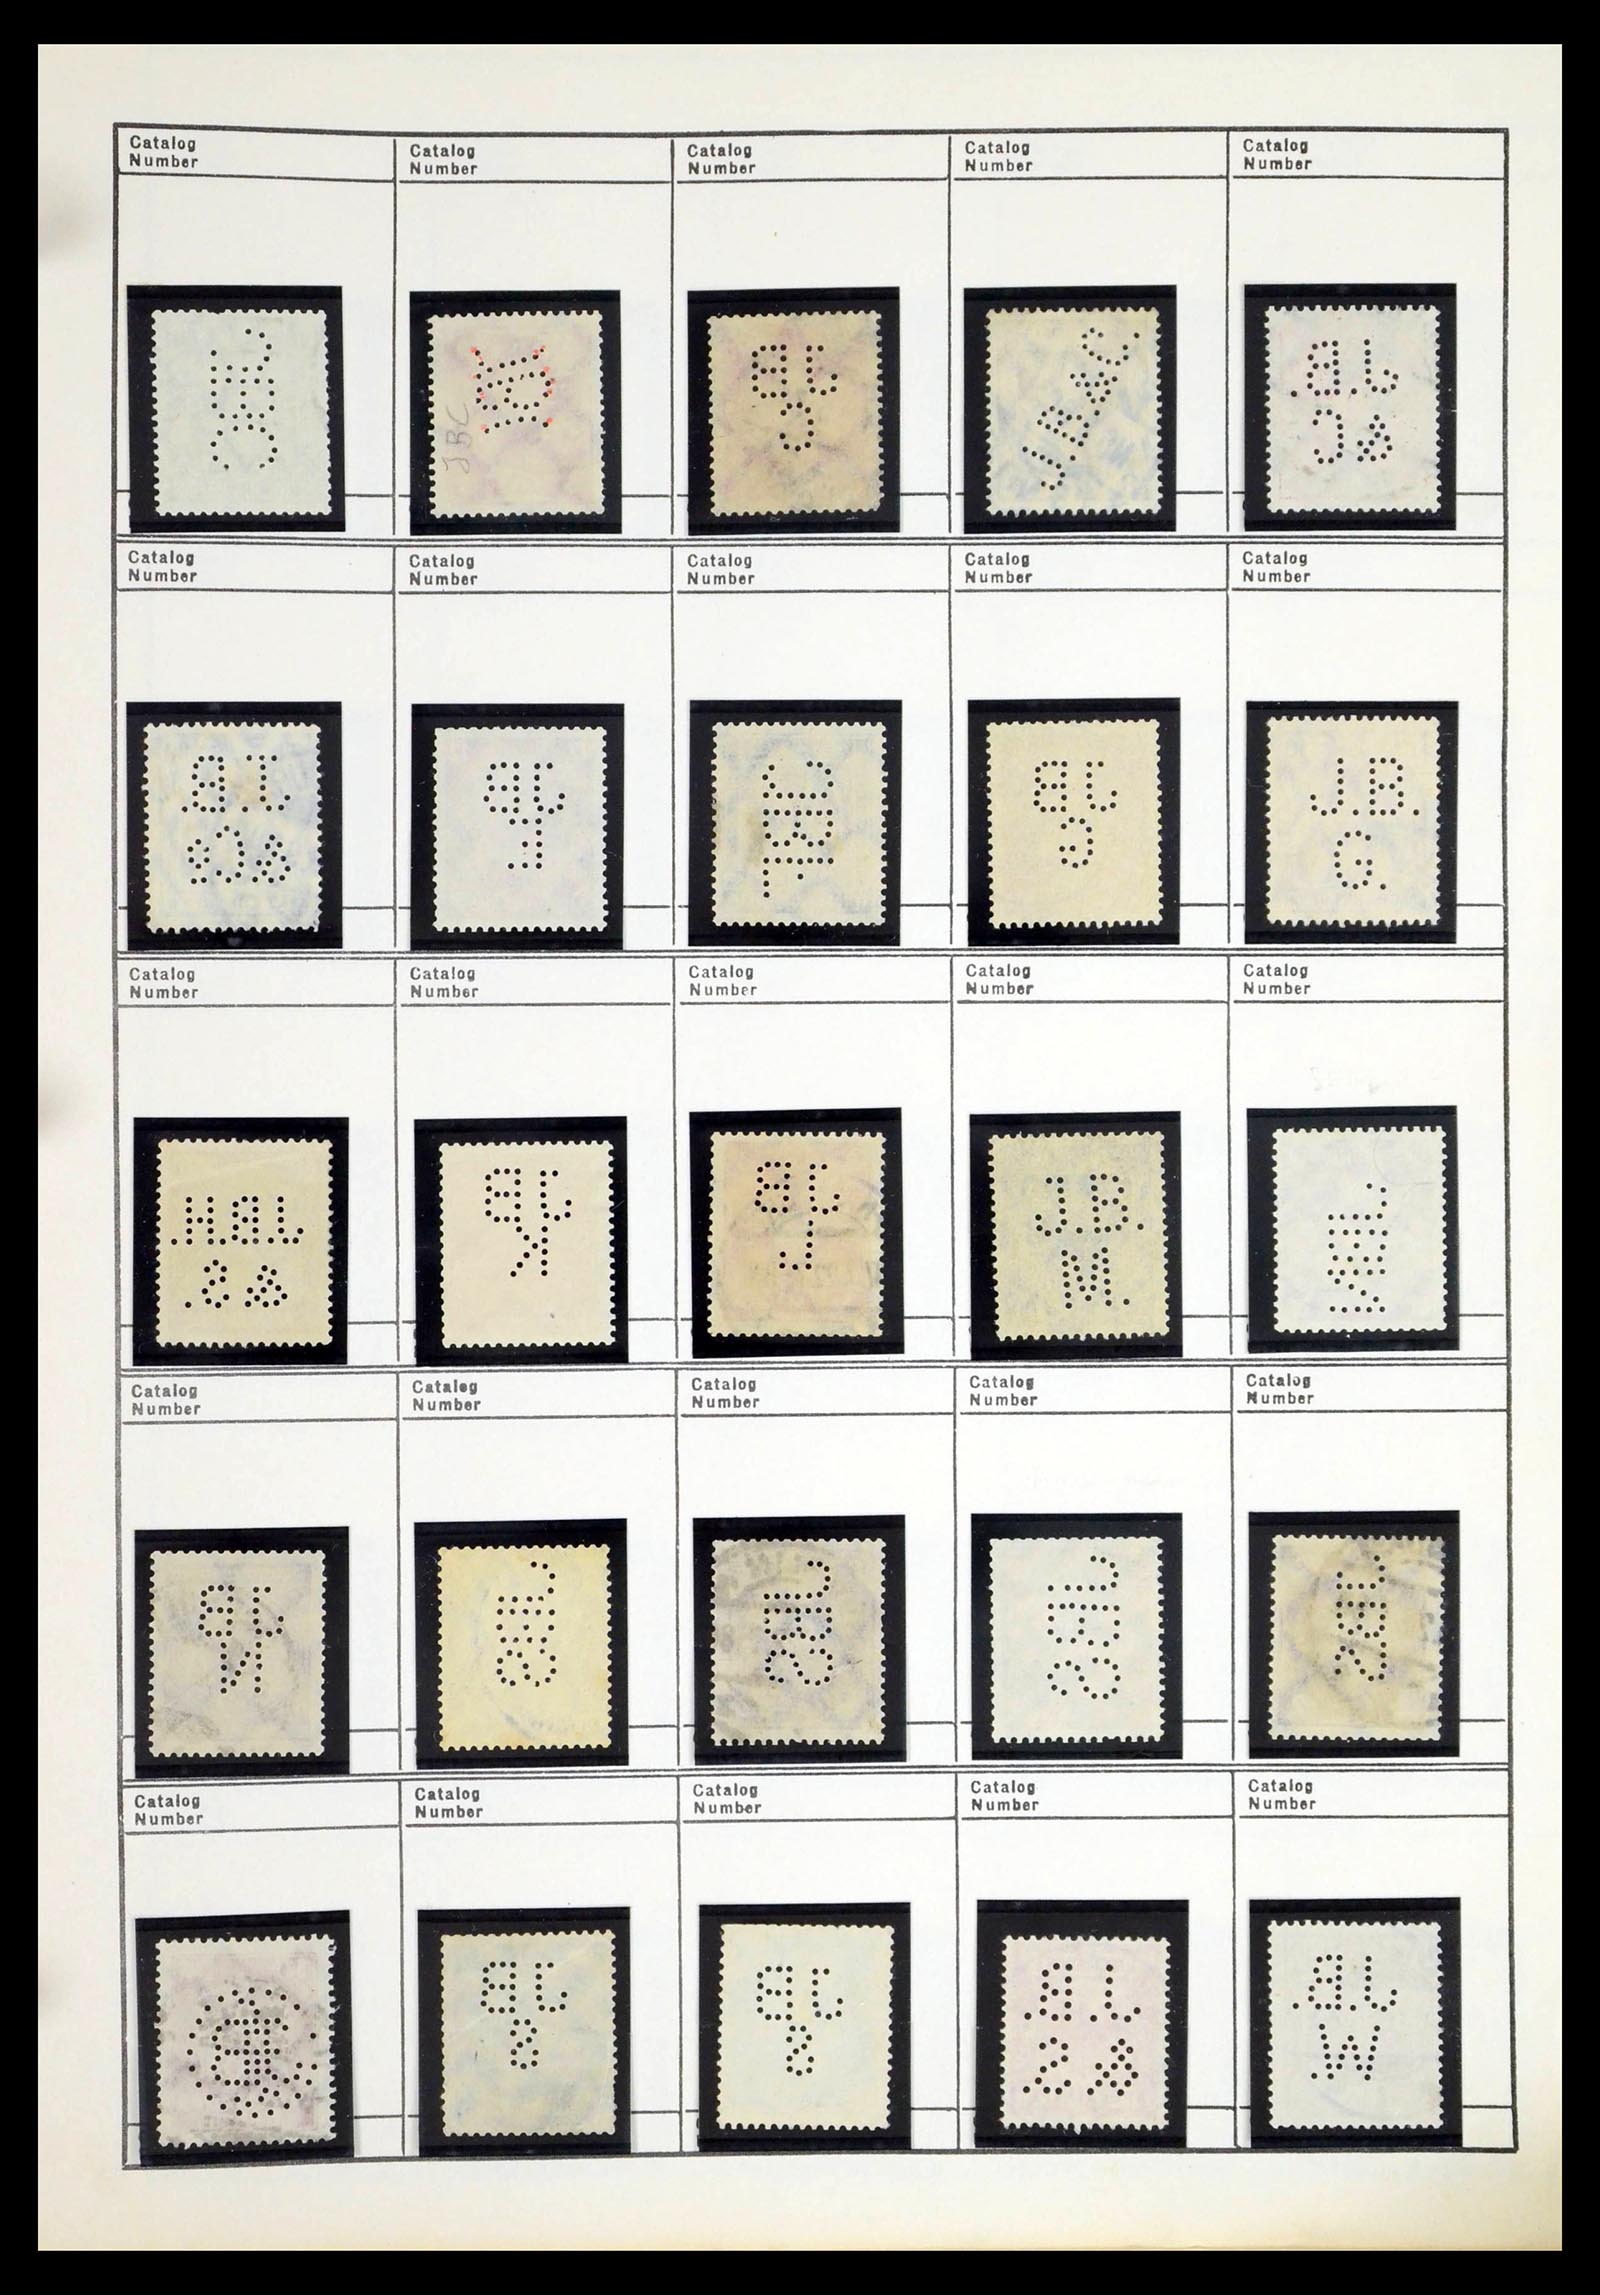 Catalog Number Catalog Number Catalog Number Catalog Number Catalog Number
JBC
JBC
JB
C
J.B.&C.
J.B.
&C
J.B.
&Co
JB
F
JBF
JB
G
J.B.
G.
Catalog Number Catalog Number Catalog Number Catalog Number Catalog Number
Catalog Number Catalog Number Catalog Number Catalog Number Catalog Number
J.B.H.
&S.
JB
K
JB
L
J.B.
M.
JBM
Catalog Number Catalog Number Catalog Number Catalog Number Catalog Number
JB
N
JBS
JBS
JBS
JBS
Catalog Number Catalog Number Catalog Number Catalog Number Catalog Number
JB
S
JB
S
J.B.
&S
J.B.
W